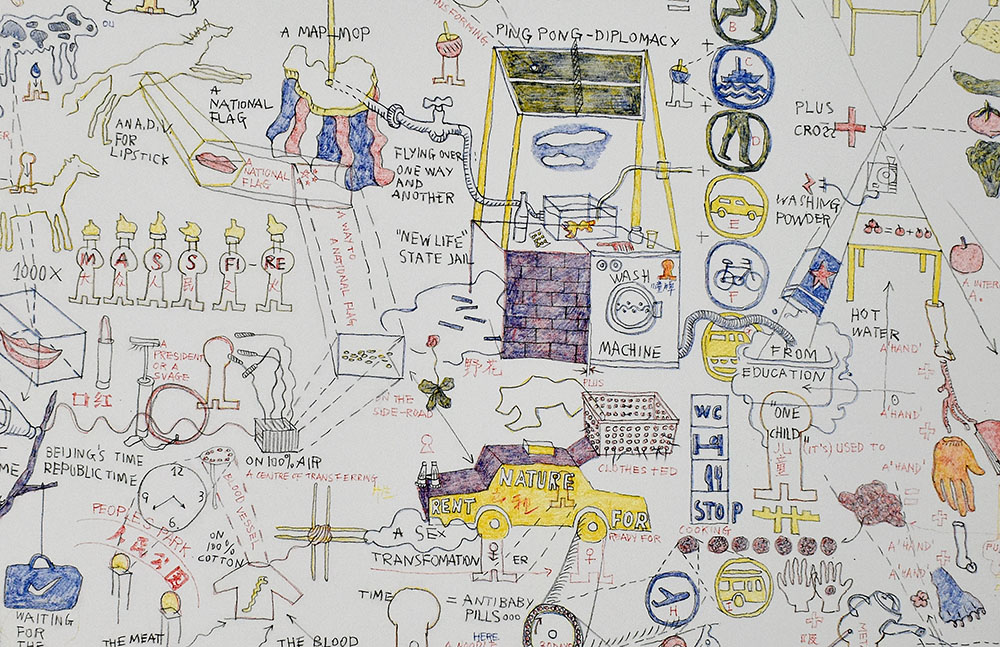 OU
ANSFORMING
A MAP-MOP
PING PONG-DIPLOMACY
B
C
D
E
F
A
NATIONAL
FLAG
AN A.D.V.
FOR
LIPSTICK
A
NATIONAL
FLAG
FLYING OVER
ONE WAY
AND
ANOTHER
PLUS
CROSS
WASHING
POWDER
"NEW LIFE"
STATE JAIL
A WAY TO
A NATIONAL FLAG
1000X
MASS FI-RE
大众人民之火
WASH
MACHINE
HOT
WATER
A INTER
A.
FROM
EDUCATION
A
PRESIDENT
OR A
SVAGE
口红
野花
ON THE
SIDE-ROAD
PLUS
"ONE
CHILD"
儿童
(IT'S) USED TO
A'HAND'
A'HAND'
A'HAND'
A'HAND'
A'HAND'
WC
STOP
CLOTHES TED
BEIJING'S TIME
REPUBLIC TIME
12
3
6
9
ON 100% AIR
A CENTRE OF TRANSFERRING
BLOOD VESSEL
PEOPLE'S PARK
人民公园
ON
100%
COTTON
NATURE
RENT
FOR
READY FOR
COOKING
A SEX
TRANSFOMATION
ER
TIME
= ANTIBABY
PILLS ooo
HERE
A NOODLE
30 DAYS
H
F
WAITING
FOR
THE
THE MEAT
THE BLOOD
MET